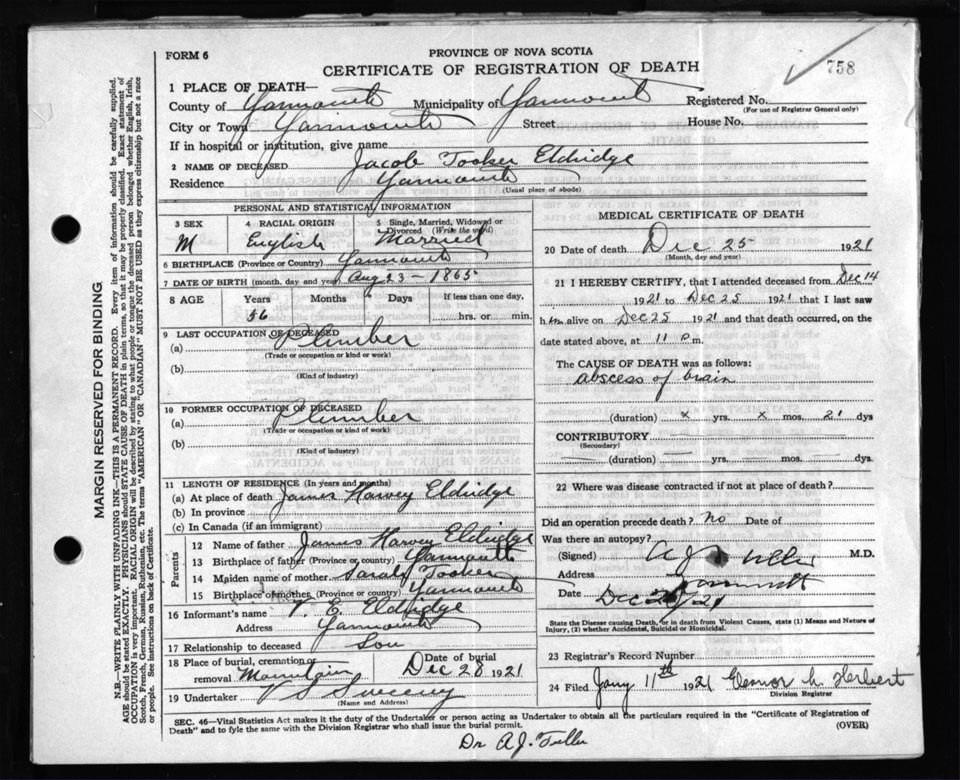 FORM 6
PROVINCE OF NOVA SCOTIA
CERTIFICATE OF REGISTRATION OF DEATH
758
MARGIN RESERVED FOR BINDING
N.B.—WRITE PLAINLY WITH UNFADING INK—THIS IS A PERMANENT RECORD. Every item of information should be carefully supplied.
AGE should be stated EXACTLY. PHYSICIANS should STATE CAUSE OF DEATH in plain terms, so that it may be properly classified. Exact statement of
OCCUPATION is very important. RACIAL ORIGIN will be described by stating to what people or tongue the deceased person belonged whether English, Irish,
Scotch, French, German, Russian, Ruthenian, etc. The terms "AMERICAN" OR "CANADIAN" MUST NOT BE USED as they express citizenship but not a race
or people. See instructions on back of Certificate.
1 PLACE OF DEATH—
County of Yarmouth Municipality of Yarmouth Registered No.
(For use of Registrar General only)
City or Town Yarmouth Street House No.
If in hospital or institution, give name
2 NAME OF DECEASED Jacob Tooker Eldridge
Residence Yarmouth
(Usual place of abode)
PERSONAL AND STATISTICAL INFORMATION
3 SEX 4 RACIAL ORIGIN 5 Single, Married, Widowed or
Divorced (Write the word)
M English Married
6 BIRTHPLACE (Province or Country) Yarmouth
7 DATE OF BIRTH (month, day and year) Aug 23 - 1865
8 AGE Years Months Days If less than one day,
56 hrs. or min.
9 LAST OCCUPATION OF DECEASED
(a) Plumber
(Trade or occupation or kind or work)
(b)
(Kind of industry)
10 FORMER OCCUPATION OF DECEASED
(a) Plumber
(Trade or occupation or kind or work)
(b)
(Kind of industry)
11 LENGTH OF RESIDENCE (In years and months)
(a) At place of death James Harvey Eldridge
(b) In province
(c) In Canada (if an immigrant)
Parents
12 Name of father James Harvey Eldridge
13 Birthplace of father (Province or country) Yarmouth
14 Maiden name of mother Sarah Tooker
15 Birthplace of mother (Province or Country) Yarmouth
16 Informant's name V. E. Eldridge
Address Yarmouth
17 Relationship to deceased Son
18 Place of burial, cremation or Date of burial
removal Mountain Dec 28 1921
19 Undertaker V S Sweeny
(Name and Address)
MEDICAL CERTIFICATE OF DEATH
20 Date of death Dec 25 1921
(Month, day and year)
21 I HEREBY CERTIFY, that I attended deceased from Dec 14
1921 to Dec 25 1921 that I last saw
him alive on Dec 25 1921 and that death occurred, on
date stated above, at 11 P.m.
The CAUSE OF DEATH was as follows:
abscess of brain
(duration) x yrs. x mos. 21 dys
CONTRIBUTORY
(Secondary)
(duration) yrs. mos. dys.
22 Where was disease contracted if not at place of death?
Did an operation precede death? no Date of
Was there an autopsy?
(Signed) A J Fuller M.D.
Address Yarmouth
Date Dec /21
State the Disease causing Death, or in death from Violent Causes, state (1) Means and Nature of
Injury, (2) whether Accidental, Suicidal or Homicidal.
23 Registrar's Record Number
24 Filed Jany 11th 1921 Herbert
Division Registrar
SEC. 46—Vital Statistics Act makes it the duty of the Undertaker or person acting as Undertaker to obtain all the particulars required in the "Certificate of Registration of
Death" and to fyle the same with the Division Registrar who shall issue the burial permit. (OVER)
Dr A.J. Fuller